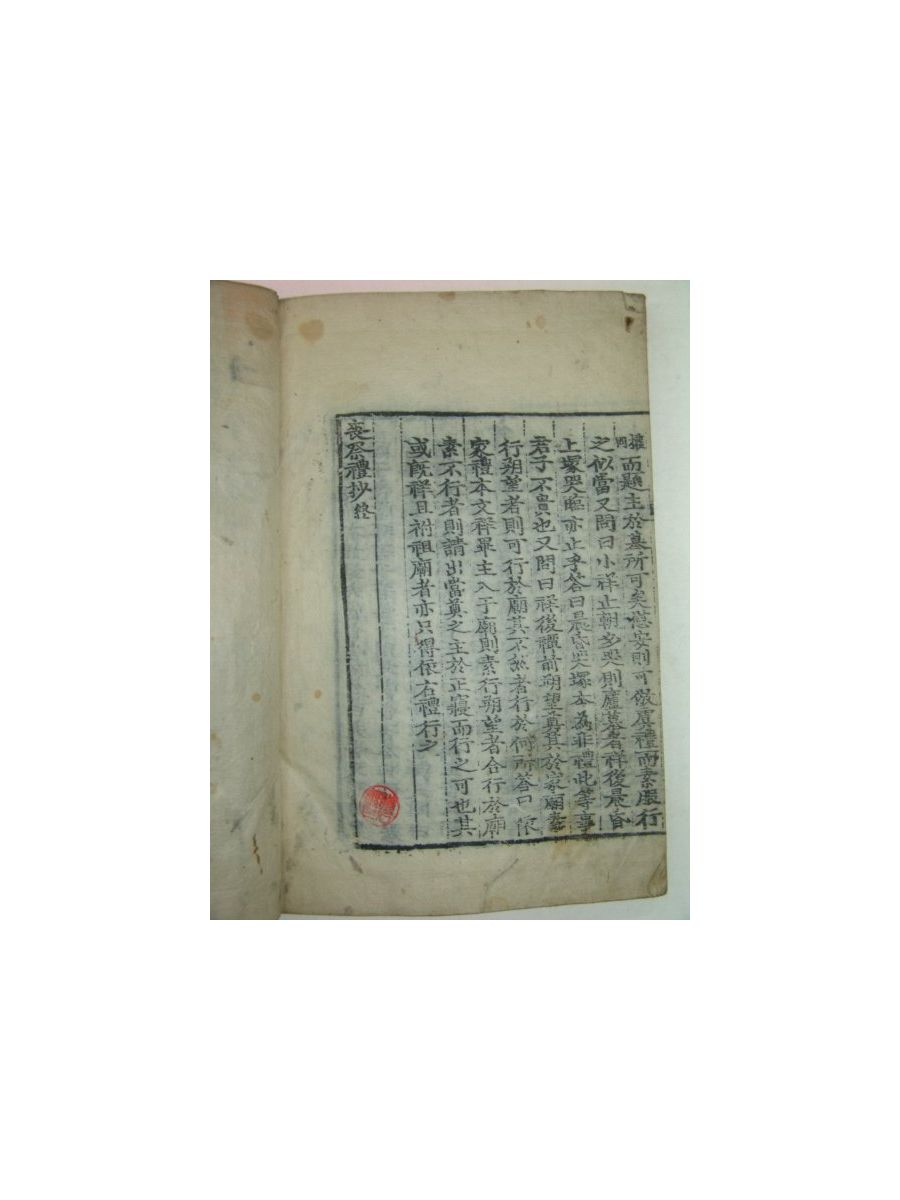 而題主於墓所可矣慰安則可倣虞禮而素服行
之似當又問曰小祥止朝夕哭則廬墓者祥後晨昏
上塚哭臨亦止乎答曰晨昏哭塚本為非禮此等事
君子不貴也又問曰祥後禫前朔望奠其於家廟素
行朔望者則可行於廟其不然者行於何所答曰依
家禮本文祥畢主入于廟則素行朔望者合行於廟
素不行者則請出當奠之主於正寢而行之可也其
或旣祥且祔祖廟者亦只得依右禮行之
喪祭禮抄 終